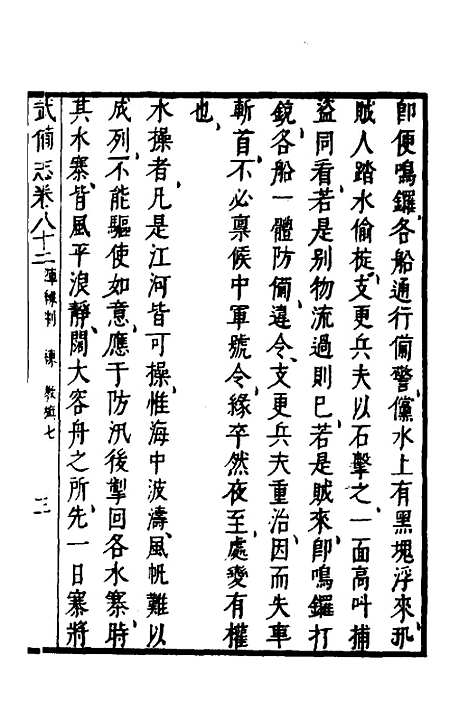 即便鳴鑼各船通行俻警儻水上有黑塊浮來乃
賊人踏水偷椗支更兵夫以石擊之一面高叫捕
盗同看若是别物流過則已若是賊來即鳴鑼打
銃各船一體防俻違令支更兵夫重治因而失事
斬首不必禀候中軍號令緣卒然夜至處變有權
也
水操者凡是江河皆可操惟海中波濤風帆難以
成列不能驅使如意應于防汛後掣回各水寨時
其水寨皆風平浪靜闊大容舟之所先一日寨將
武俻志卷八十二 陣練制 練 教旗七 三